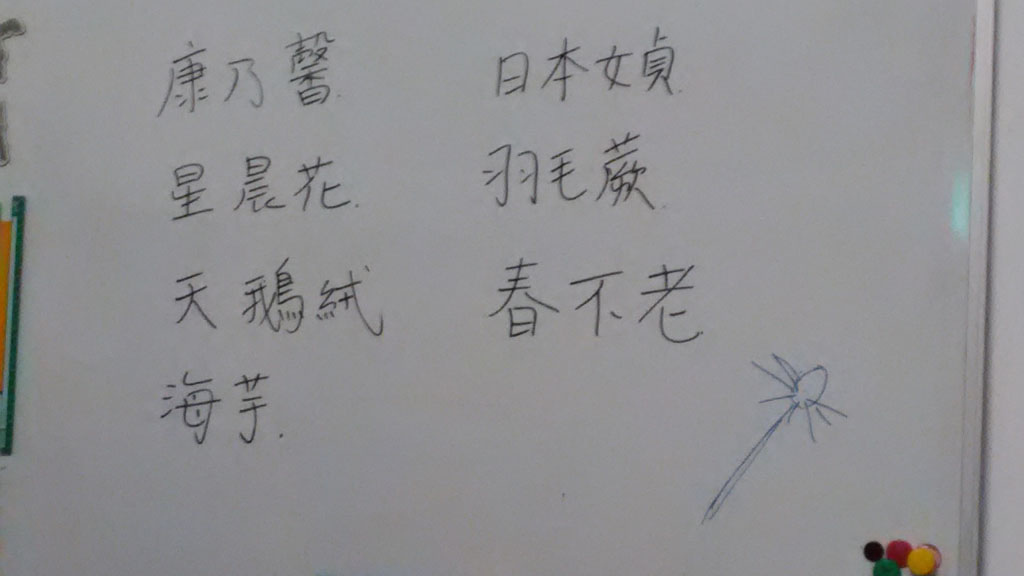 康乃馨
星晨花
天鵝絨
海芋
日本女貞
羽毛蕨
春不老